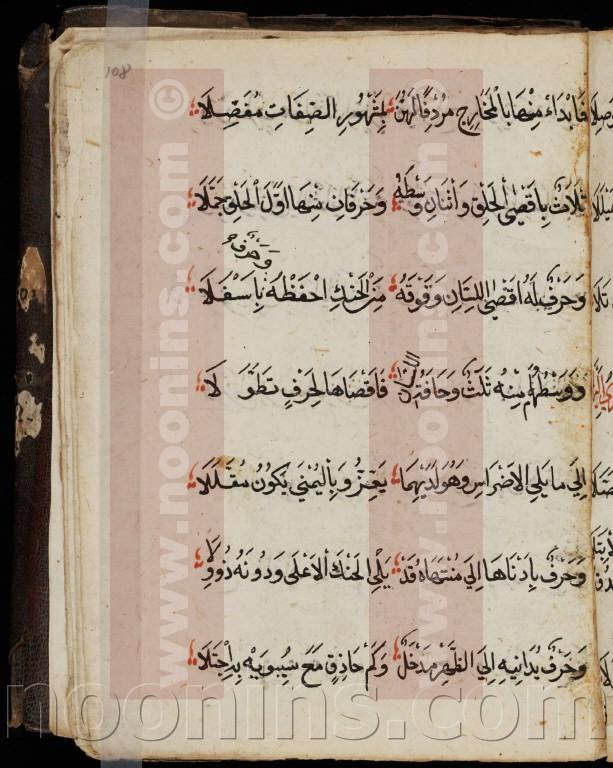 108
فَابْدَاءْ مِنْهَا بِالْمَخَارِجِ مُرْدِفًا لَهُنَّ بِمَشْهُورِ الصِّفَاتِ مُفَصِّلَا
ثَلَاثٌ بِاَقْصَى الْحَلْقِ وَاثْنَانِ وَسْطَهُ وَحَرْفَانِ مِنْهَا اَوَّلَ الْحَلْقِ جُمِّلَا
وَحَرْفٌ
وَحَرْفٌ لَهُ اَقْصَى اللِّسَانِ وَفَوْقَهُ مِنَ الْحَنَكِ احْفَظْهُ بِاَسْفَلَا
وَوَسْطُهُمَا مِنْهُ ثَلَثٌ وَحَافَةُ فَاَقْصَاهَا لِحَرْفٍ تَطَوَّلَا
اِلَى مَا يَلِي الْاَضْرَاسَ وَهُوَ لَدَيْهِمَا يَعِزُّ وَبِالْيُمْنَى يَكُونُ مُقَلَّلَا
وَحَرْفٌ بِاَدْنَاهَا اِلَى مُنْتَهَاهُ قَدْ يَلِي الْحَنَكَ الْاَعْلَى وَدُونَهُ ذُو وِلَا
وَحَرْفٌ يُدَانِيهِ اِلَى الظَّهْرِ مَدْخَلٌ وَكَمْ حَاذِقٍ مَعَ سِيبَوَيْهِ بِهِ اجْتَلَا
www.noonins.com ©
www.noonins.com ©
noonins.com